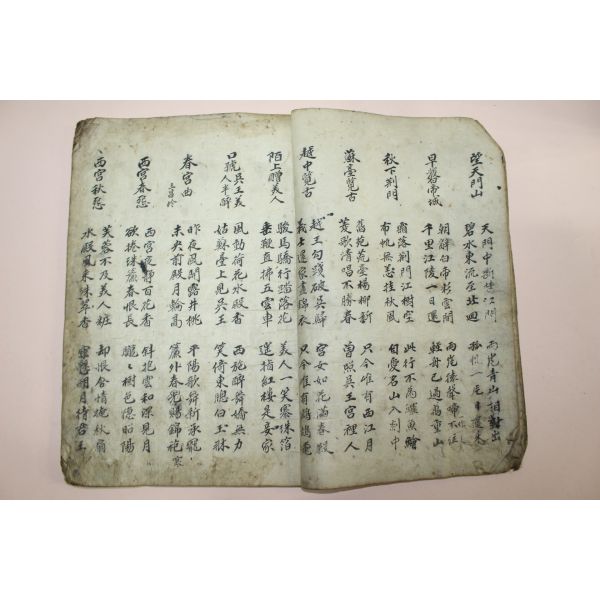 望天門山
天門中斷楚江開
碧水東流至北廻
兩岸青山相對出
孤帆一片日邊來
早發帝城
朝辭白帝彩雲間
千里江陵一日還
兩岸猿聲啼不住
輕舟已過萬重山
秋下荊門
霜落荊門江樹空
布帆無恙挂秋風
此行不為鱸魚鱠
自愛名山入剡中
蘇臺覽古
舊苑荒臺楊柳新
菱歌清唱不勝春
只今唯有西江月
曾照吳王宮裡人
越中覽古
越王勾踐破吳歸
義士還家盡錦衣
宮女如花滿春殿
只今唯有鷓鴣飛
陌上贈美人
駿馬驕行踏落花
垂鞭直拂五雲車
美人一笑褰珠箔
遙指紅樓是妾家
口號吳王美人半醉
風動荷花水殿香
姑蘇臺上見吳王
西施醉舞嬌無力
笑倚東牕白玉牀
春宮曲
王昌岭
昨夜風開露井桃
未央前殿月輪高
平陽歌舞新承寵
簾外春兜賜錦袍
寒
西宮春怨
西宮夜靜百花香
欲捲珠簾春恨長
斜抱雲和深見月
朧々樹色隱昭陽
西宮秋怨
芙蓉不及美人粧
水殿風來珠翠香
却恨含情掩秋扇
空懸明月待君王